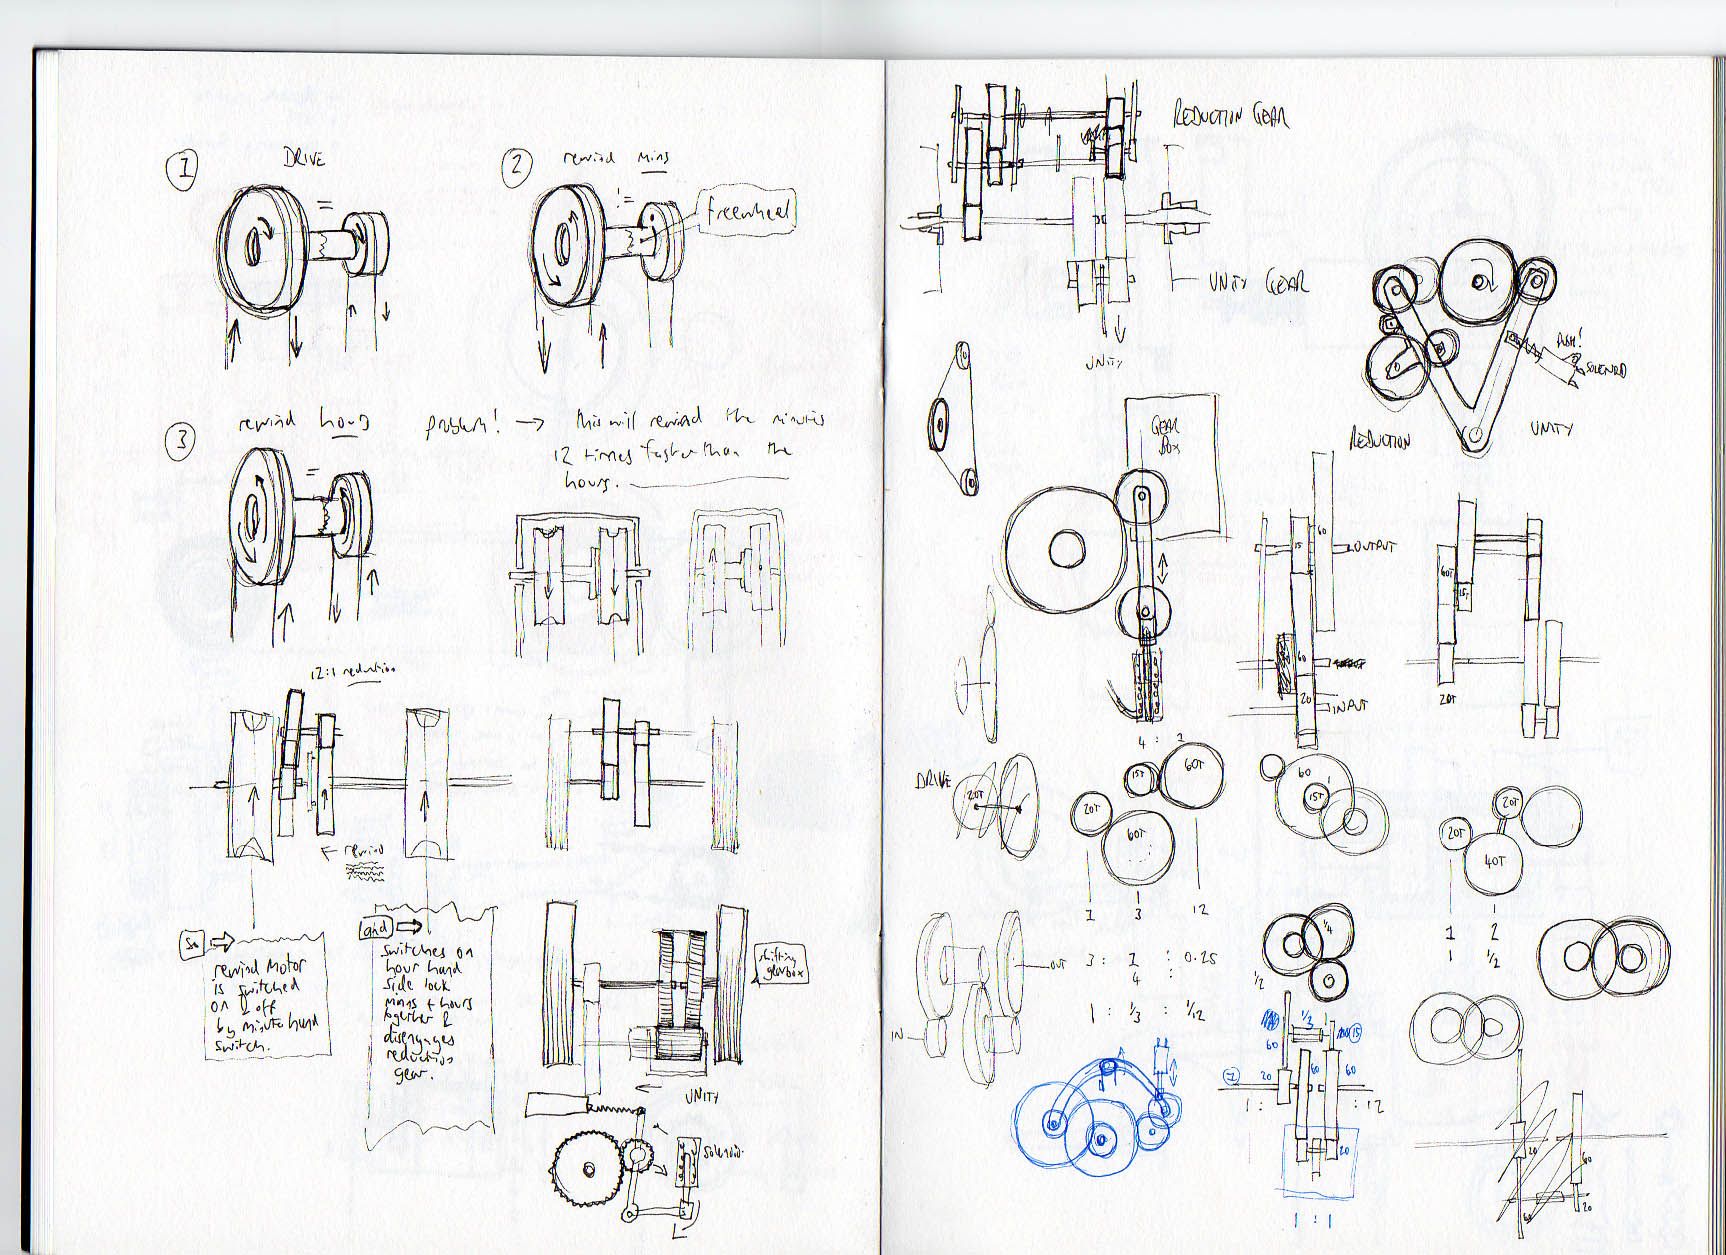 1
DRIVE
=
2
rewind mins
!=
freewheel
3
rewind hours
=
problem! → this will rewind the minutes
12 times faster than the
hours.
12:1 reduction
← rewind
so
rewind motor
is switched
on & off
by minute hand
switch.
and
switches on
hour hand
side lock
mins + hours
together &
disengages
reduction
gear.
shifting
gearbox
UNITY
solenoid.
REDUCTION GEAR
UNITY GEAR
UNITY
PUSH!
SOLENOID
REDUCTION
UNITY
GEAR
BOX
15
60
OUTPUT
60
20
INPUT
60T
15T
20T
4 : 1
DRIVE
20T
20T
15T
60T
60T
1
3
12
60
15T
20T
20T
40T
1
2
1
1/2
OUT
IN
3 : 1 : 0.25
4 :
1 : 1/3 : 1/12
1/4
1/2
1/3
15
60
1
20
60
60
1 :
: 12
20
1 : 1
20
60
60
20